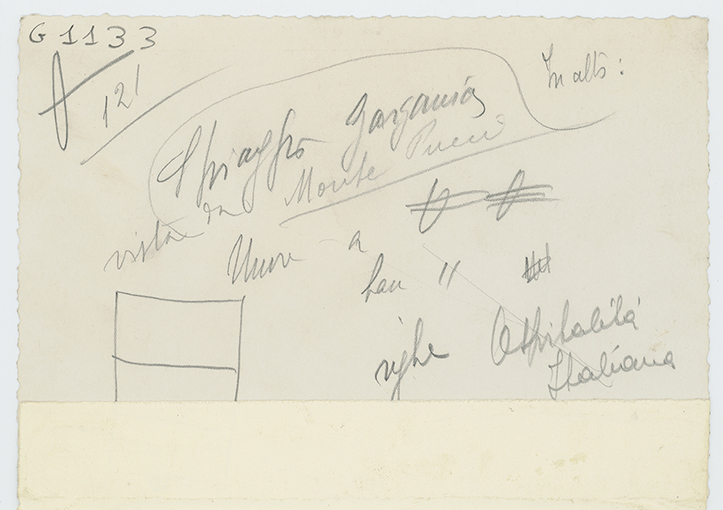 G1133
121
In alto:
Spiaggia garganica
vista da Monte Pucci
Unire a
"
righe Ospitalità
Italiana